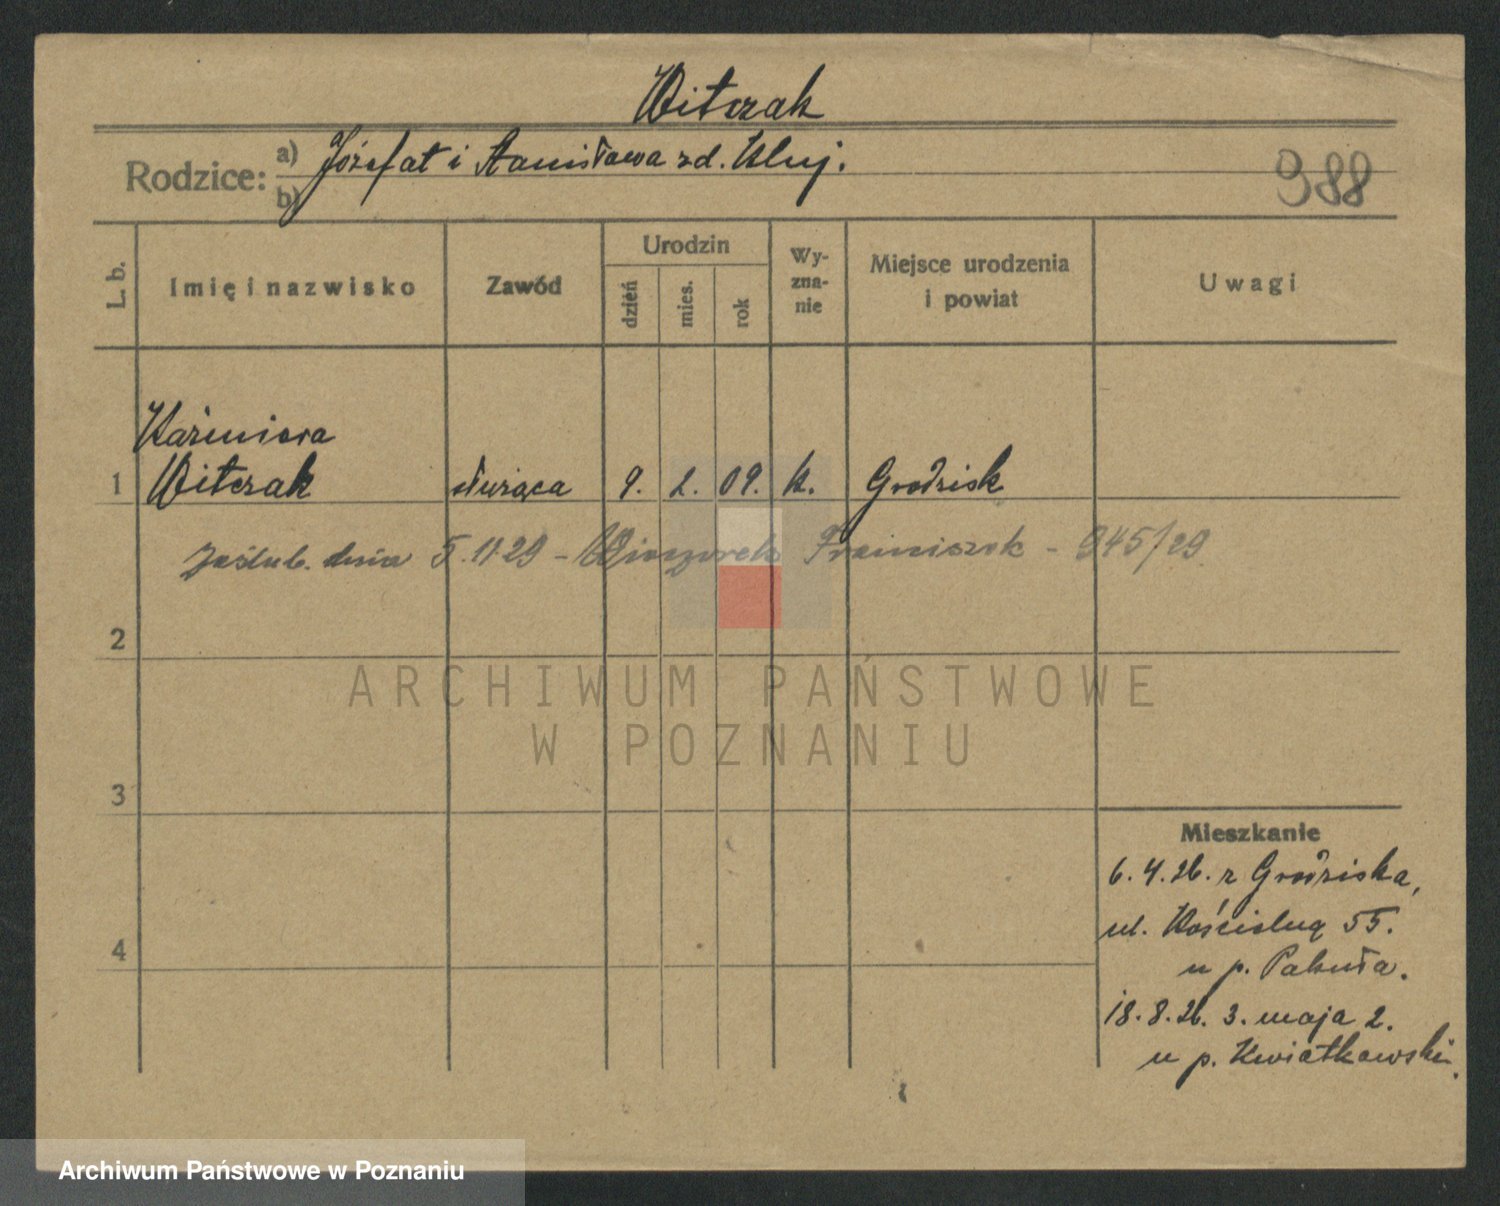 Witczak
Rodzice: a) Józefat i Stanisława zd. Kluj.
b)
988
L. b.
Imię i nazwisko
Zawód
Urodzin
dzień
mies.
rok
Wy-
zna-
nie
Miejsce urodzenia
i powiat
Uwagi
Kaźmiera
1 Witczak służąca 9. 2. 09. k. Grodzisk
Zaślub. dnia 5.11.29 - Wieczorek Franciszek - 945/29
2
3
4
Mieszkanie
6.4.26. z Grodziska,
ul. 55.
u p. Pakuła.
18.8.26. 3. maja 2.
u p. Kwiatkowski.
ARCHIWUM PAŃSTWOWE
W POZNANIU
Archiwum Państwowe w Poznaniu